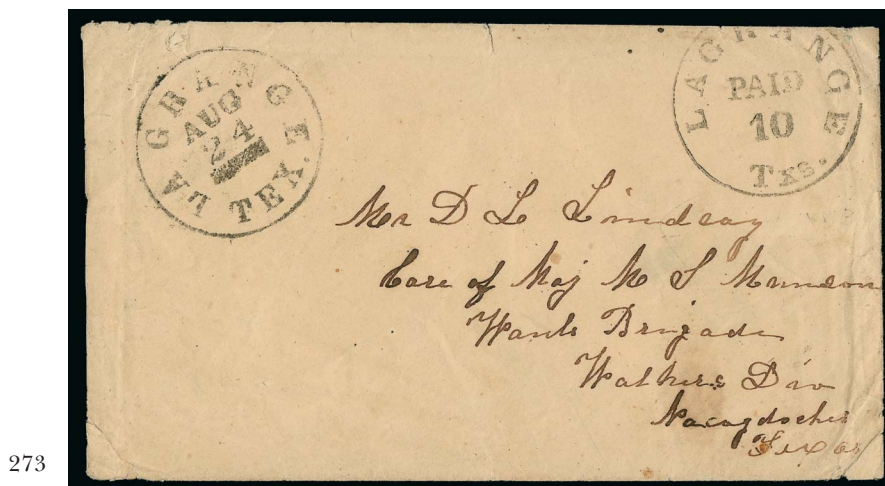 LA GRANGE TEX.
AUG
24
LAGRANGE Txs.
PAID
10
Mr D L Lindsay
Care of Maj M S Munson
Wauls Brigade
Walkers Div
Nacogdoches
Texas
273